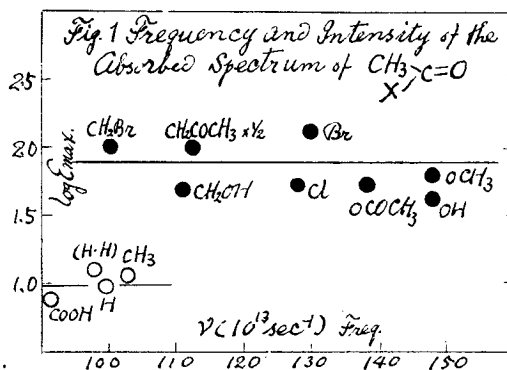 Fig. 1 Frequency and Intensity of the
Absorbed Spectrum of CH3 C=O
X
2.5
2.0
1.5
1.0
log Emax.
CH2Br
CH2COCH3 x ½
Br
CH2OH
Cl
OCOCH3
OCH3
OH
(H·H)
CH3
COOH
H
ν(10¹³sec⁻¹) Freq.
100 110 120 130 140 150